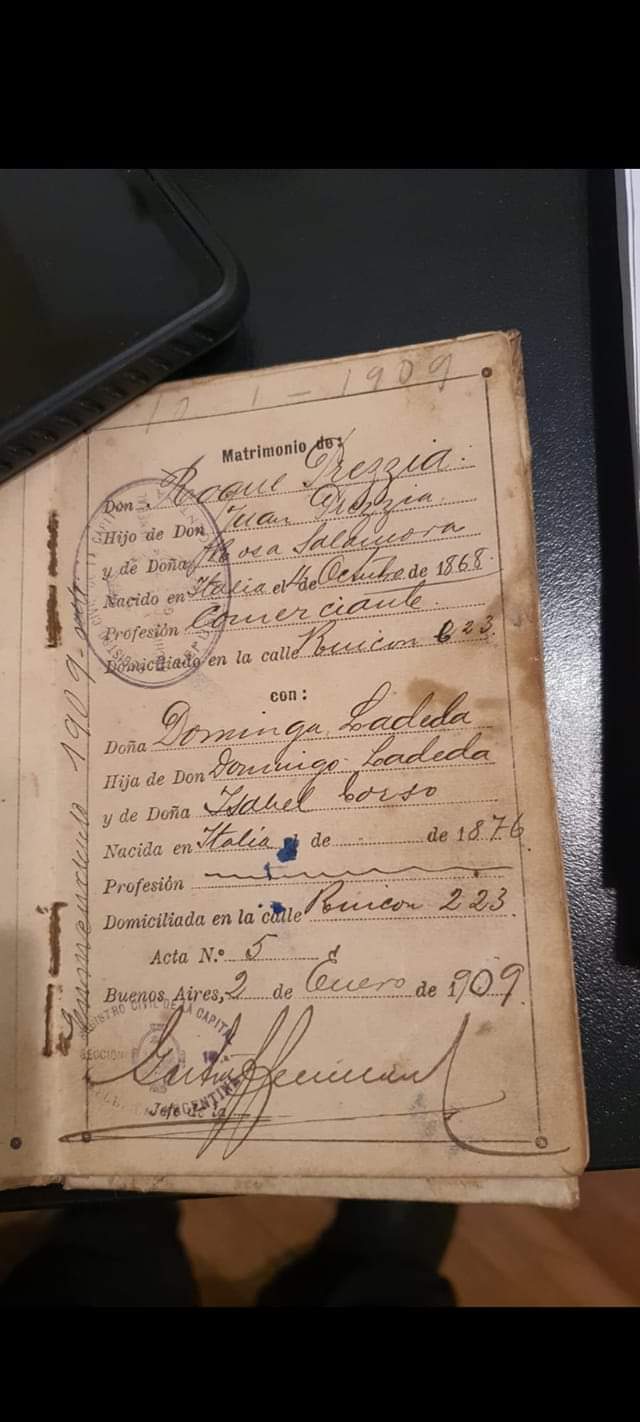 1 - 1909
Matrimonio de:
Don Roque Prezzia
Hijo de Don Juan Prezzia
y de Doña Rosa Salamora
Nacido en Italia el 4 de Octubre de 1868
Profesión Comerciante
Domiciliado en la calle Rincon 223
con:
Doña Dominga Ladeda
Hija de Don Domingo Ladeda
y de Doña Isabel Corso
Nacida en Italia el de de 1876
Profesión
Domiciliada en la calle Rincon 223
Acta N.º 5
Buenos Aires, 2 de Enero de 1909
REGISTRO CIVIL DE LA CAPITAL
SECCIÓN
ARGENTINA
Jefe de la
1909